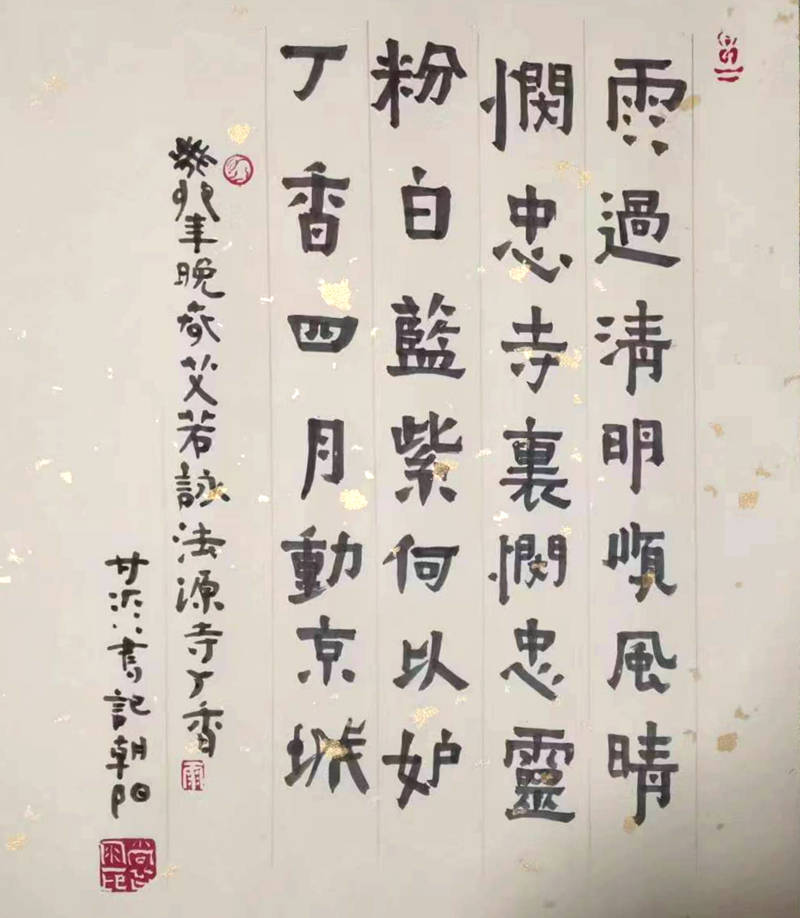 雨過清明順風晴
憫忠寺裏憫忠靈
粉白藍紫何以妒
丁香四月動京城
癸卯年晚春艾若詠法源寺丁香
書記朝陽
雨